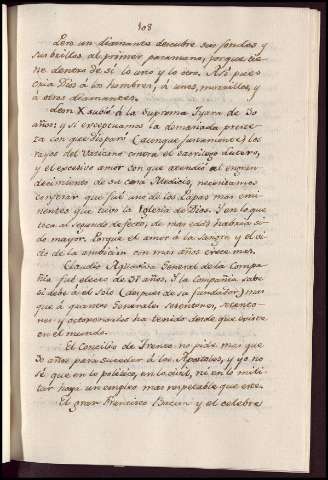 108
Pero un diamante descubre sus fondos, y
sus brillos al primer paramano, porque tie-
ne dentro de sí lo uno y lo otro. Así pues
cria Dios á los hombres; á unos, morrillos, y
á otros diamantes.
Leon X subió á la suprema Tyara de 30
años: y si exceptuamos la demasiada preste-
za con que disparó (aunque justamente) los
rayos del Vaticano contra el sacrilego Lutero,
y el excesivo amor con que atendió al engran-
decimiento de su casa Medicis, necesitamos
confesar que fué uno de los Papas mas emi-
nentes que tuvo la Iglesia de Dios. Y en lo que
toca al segundo defecto, de mas edad habria si-
do mayor. Porque el amor á la sangre y el vi-
cio de la ambicion con mas años crece mas.
Claudio Aquaviva General de la Compa-
ñia fué electo de 37 años. Y la Compañia sabe
si debe á él solo (despues de su fundador) mas
que á quantos Generales setentones, ochento-
nes y octogenarios ha tenido desde que existe
en el mundo.
El Concilio de Trento no pide mas que
30 años para suceder á los Apostoles, y yo no
sé que en lo politico, en lo civil, ni en lo mili-
tar haya un empleo mas respetable que este.
El gran Francisco Bacon y el celebre